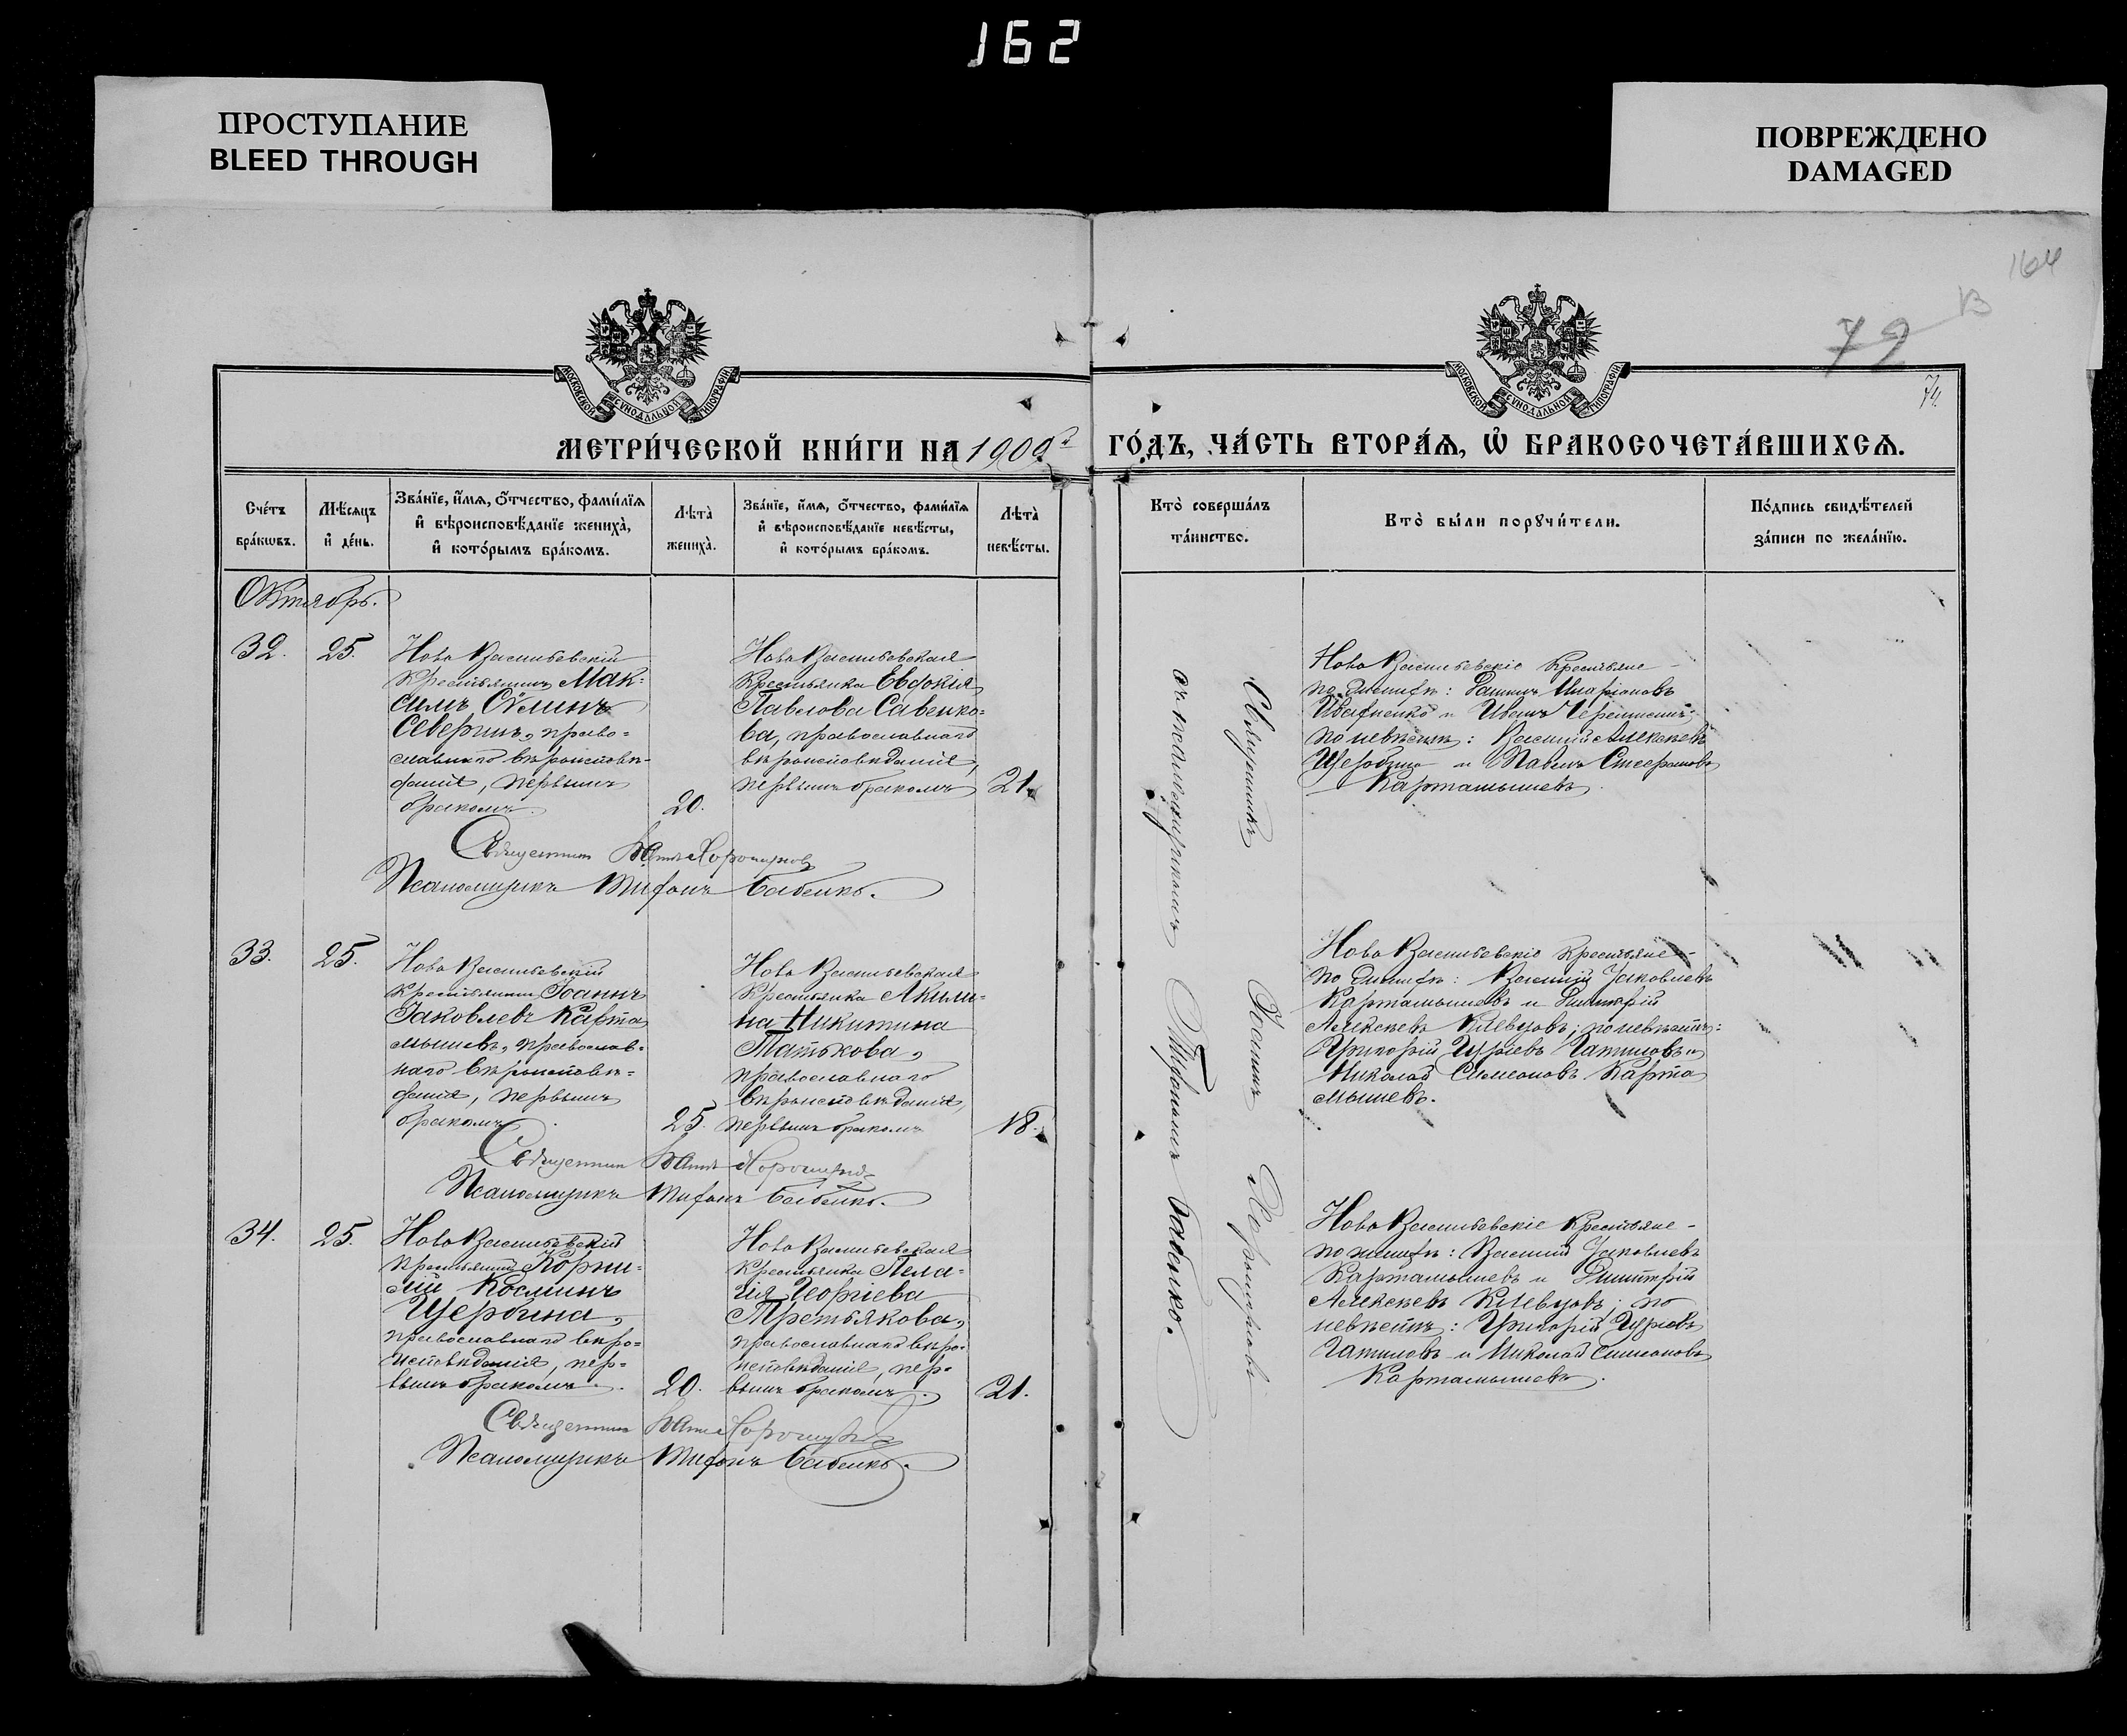 162
ПРОСТУПАНИЕ
BLEED THROUGH
ПОВРЕЖДЕНО
DAMAGED
164
В
79
74.
МОСКОВСКОЙ СѴНОДАЛЬНОЙ ТИПОГРАФІИ
МОСКОВСКОЙ СѴНОДАЛЬНОЙ ТИПОГРАФІИ
МЕТРИ́ЧЕСКОЙ КНИ́ГИ НА 1909 ГО́ДЪ, ЧА́СТЬ ВТОРА́Ѧ, Ѽ БРАКОСОЧЕТА́ВШИХСѦ.
Сче́тъ бра́кѡвъ.
Мѣ́сяцъ и҆ де́нь.
Зва́нїе, и҆́мѧ, ѻ҆́тчество, фами́лїѧ и҆ вѣроисповѣ́данїе жениха̀, и҆ кото́рымъ бра́комъ.
Лѣта̀ жениха̀.
Зва́нїе, и҆́мѧ, ѻ҆́тчество, фами́лїѧ и҆ вѣроисповѣ́данїе невѣ́сты, и҆ кото́рымъ бра́комъ.
Лѣта̀ невѣ́сты.
Кто̀ соверша́лъ та́инство.
Кто̀ бы́ли порꙋчи́тели.
По́дпись свидѣ́телей за́писи по жела́нїю.
Октябрь.
32.
25.
Ново Васильевскій
крестьянинъ Мак=
симъ
Северинъ, право=
славнаго вѣроисповѣ=
данія, первымъ
бракомъ.
20.
Ново Васильевская
крестьянка Евдокия
Павлова Савенко=
ва, православнаго
вѣроисповѣданія,
первымъ бракомъ
21.
Священникъ
Псаломщикъ Бабенко.
Священникъ Іоаннъ
съ псаломщикомъ Бабенко.
Ново Васильевскіе крестьяне -
по женихѣ:
Ивахненко и Иванъ
по невѣстѣ: Василій Алексѣевъ
Щербина и Павелъ
Картамышевъ.
33.
25.
Ново Васильевскій
крестьянинъ Іоаннъ
Іаковлевъ Карта
мышевъ, православ=
наго вѣроисповѣ=
данія, первымъ
бракомъ
25.
Ново Васильевская
крестьянка Акили=
на Никитина
Татькова,
православнаго
вѣроисповѣданія,
первымъ бракомъ
18.
Священникъ
Псаломщикъ Бабенко.
Ново Васильевскіе крестьяне -
по женихѣ: Василій Іаковлевъ
Картамышевъ и Димитрій
Алексѣевъ Клевцовъ; по невѣстѣ:
Григорій Гатиловъ и
Николай Симеоновъ Карта
мышевъ.
34.
25.
Ново Васильевскій
крестьянинъ Корни=
лій Косминъ
Щербина,
православнаго вѣро=
исповѣданія, пер=
вымъ бракомъ.
20.
Ново Васильевская
крестьянка Пела=
гія Георгіева
Третьякова,
православнаго вѣро=
исповѣданія, пер=
вымъ бракомъ.
21.
Священникъ
Псаломщикъ Бабенко.
Ново Васильевскіе крестьяне -
по женихѣ: Василій Іаковлевъ
Картамышевъ и Димитрій
Алексѣевъ Клевцовъ; по
невѣстѣ: Григорій
Гатиловъ и Николай Симеоновъ
Картамышевъ.